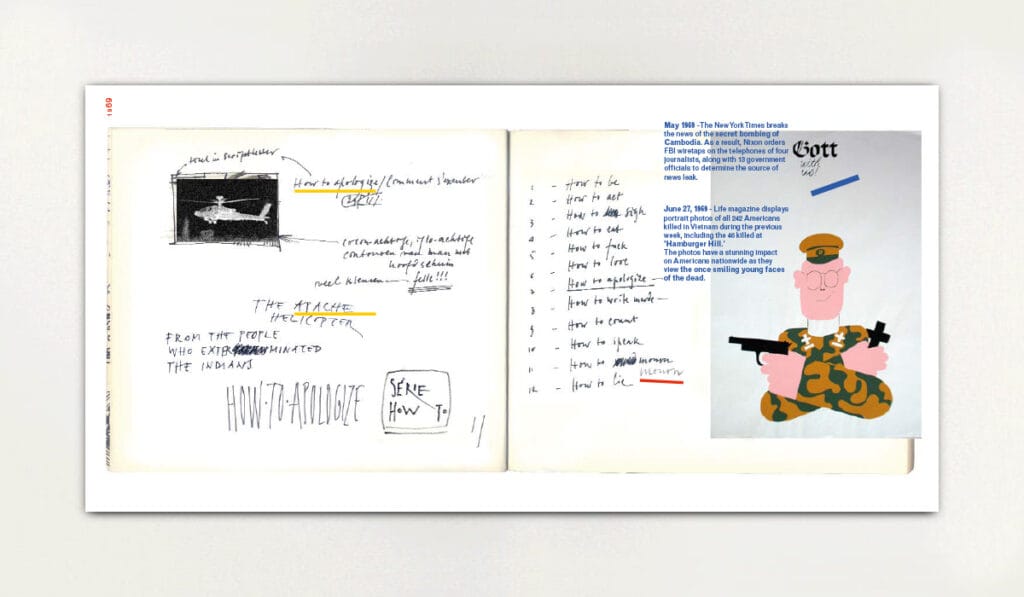 1969
How to apologize / Comment s'excuser
contouren van man met
hoofd
veel kleuren — felle!!!
THE APACHE
HELICOPTER
FROM THE PEOPLE
WHO EXTERMINATED
THE INDIANS
HOW·TO·APOLOGIZE
SÉRIE
HOW TO
1 - How to be
2 - How to act
3 - How to sigh
4 - How to eat
5 - How to fuck
6 - How to love
7 - How to apologize
8 - How to write
9 - How to count
10 - How to speak
11 - How to mourn
mourn
12 - How to lie
May 1969 - The New York Times breaks
the news of the secret bombing of
Cambodia. As a result, Nixon orders
FBI wiretaps on the telephones of four
journalists, along with 13 government
officials to determine the source of
news leak.
June 27, 1969 - Life magazine displays
portrait photos of all 242 Americans
killed in Vietnam during the previous
week, including the 46 killed at
'Hamburger Hill.'
The photos have a stunning impact
on Americans nationwide as they
view the once smiling young faces
of the dead.
Gott
with
us!